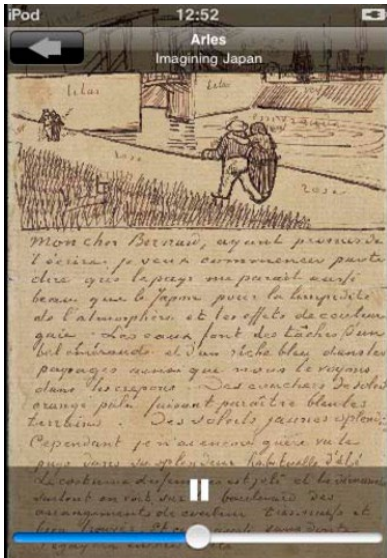 iPod 12:52
Arles
Imagining Japan
lilas lilas
rose
rose
mon cher Bernard, ayant promis de
t'écrire je veux commencer par te
dire que le pays me parait aussi
beau que le Japon pour la limpidité
de l'atmosphère et les effets de couleur
gaie. Les eaux font des tâches d'un
bel émeraude et d'un riche bleu dans les
paysages ainsi que nous le voyons
dans les crepons. Des couchers de soleil
orangé pâle faisant paraître bleu les
terrains. Des soleils jaunes splendides
Cependant je n'ai encore guère vu le
pays dans sa splendeur habituelle d'été
Le costume des femmes est joli et le dimanche
surtout on voit sur le boulevard des
arrangements de couleur
bien